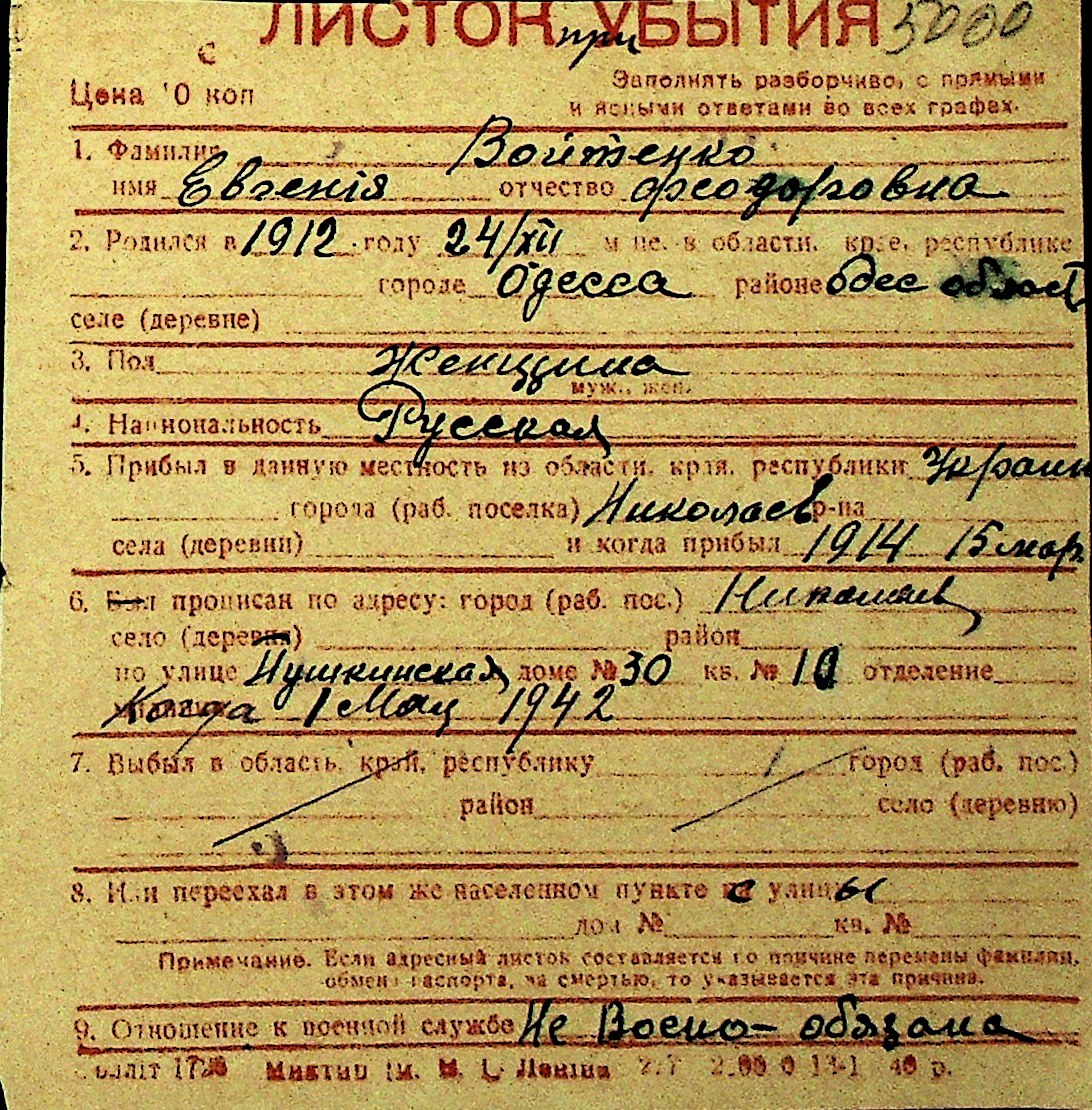 ЛИСТОК УБЫТИЯ 5000
при
с
Заполнять разборчиво, с прямыми
Цена 10 коп
и ясными ответами во всех графах.
1. Фамилия Войтенко
имя Евгенія отчество Феодоровна
2. Родился в 1912 году 24/XII м-це. в области. крае. республике
городе Одесса районе Одес област
селе (деревне)
3. Пол Женщина
муж., жен.
4. Национальность Русская
5. Прибыл в данную местность из области. края. республики Украин
города (раб. поселка) Николаев р-на
села (деревни) и когда прибыл 1914 15 мар.
6. Был прописан по адресу: город (раб. пос.) Николаев
село (деревня) район
по улице Пушкинская доме № 30 кв. № 10 отделение
Когда 1 Мая 1942
7. Выбыл в область. край. республику город (раб. пос.)
район село (деревню)
8. Или переехал в этом же населенном пункте с улицы
дом № кв. №
Примечание. Если адресный листок составляется по причине перемены фамилии,
обмена паспорта, за смертью, то указывается эта причина.
9. Отношение к военной службе Не Воено-обязана
Миктип ім. В. І. Леніна